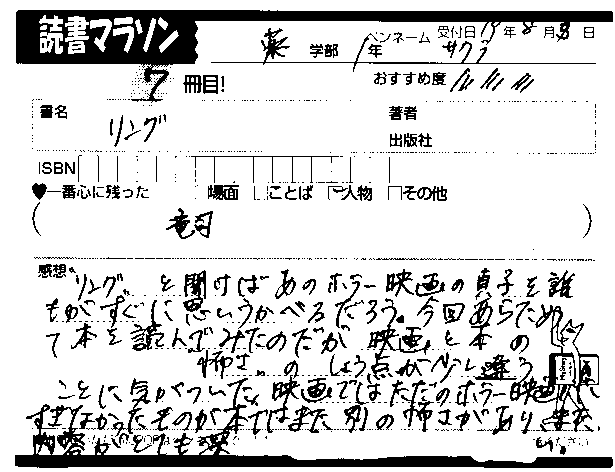 読書マラソン
薬 学部 1年
ペンネーム サクラ
受付日 19年8月8日
7 冊目!
おすすめ度
書名 リング
著者
出版社
ISBN
♥一番心に残った □場面 □ことば ☑人物 □その他
( 竜司 )
感想 "リング"と聞けばあのホラー映画の貞子を誰
もがすぐに思いうかべるだろう。今回あらため
て本を読んでみたのだが映画と本の
"怖さ"のしょう点が少し違う
ことに気がついた。映画ではただのホラー映画に
すぎなかったものが本ではまた別の怖さがあり、また、
内容がとても深